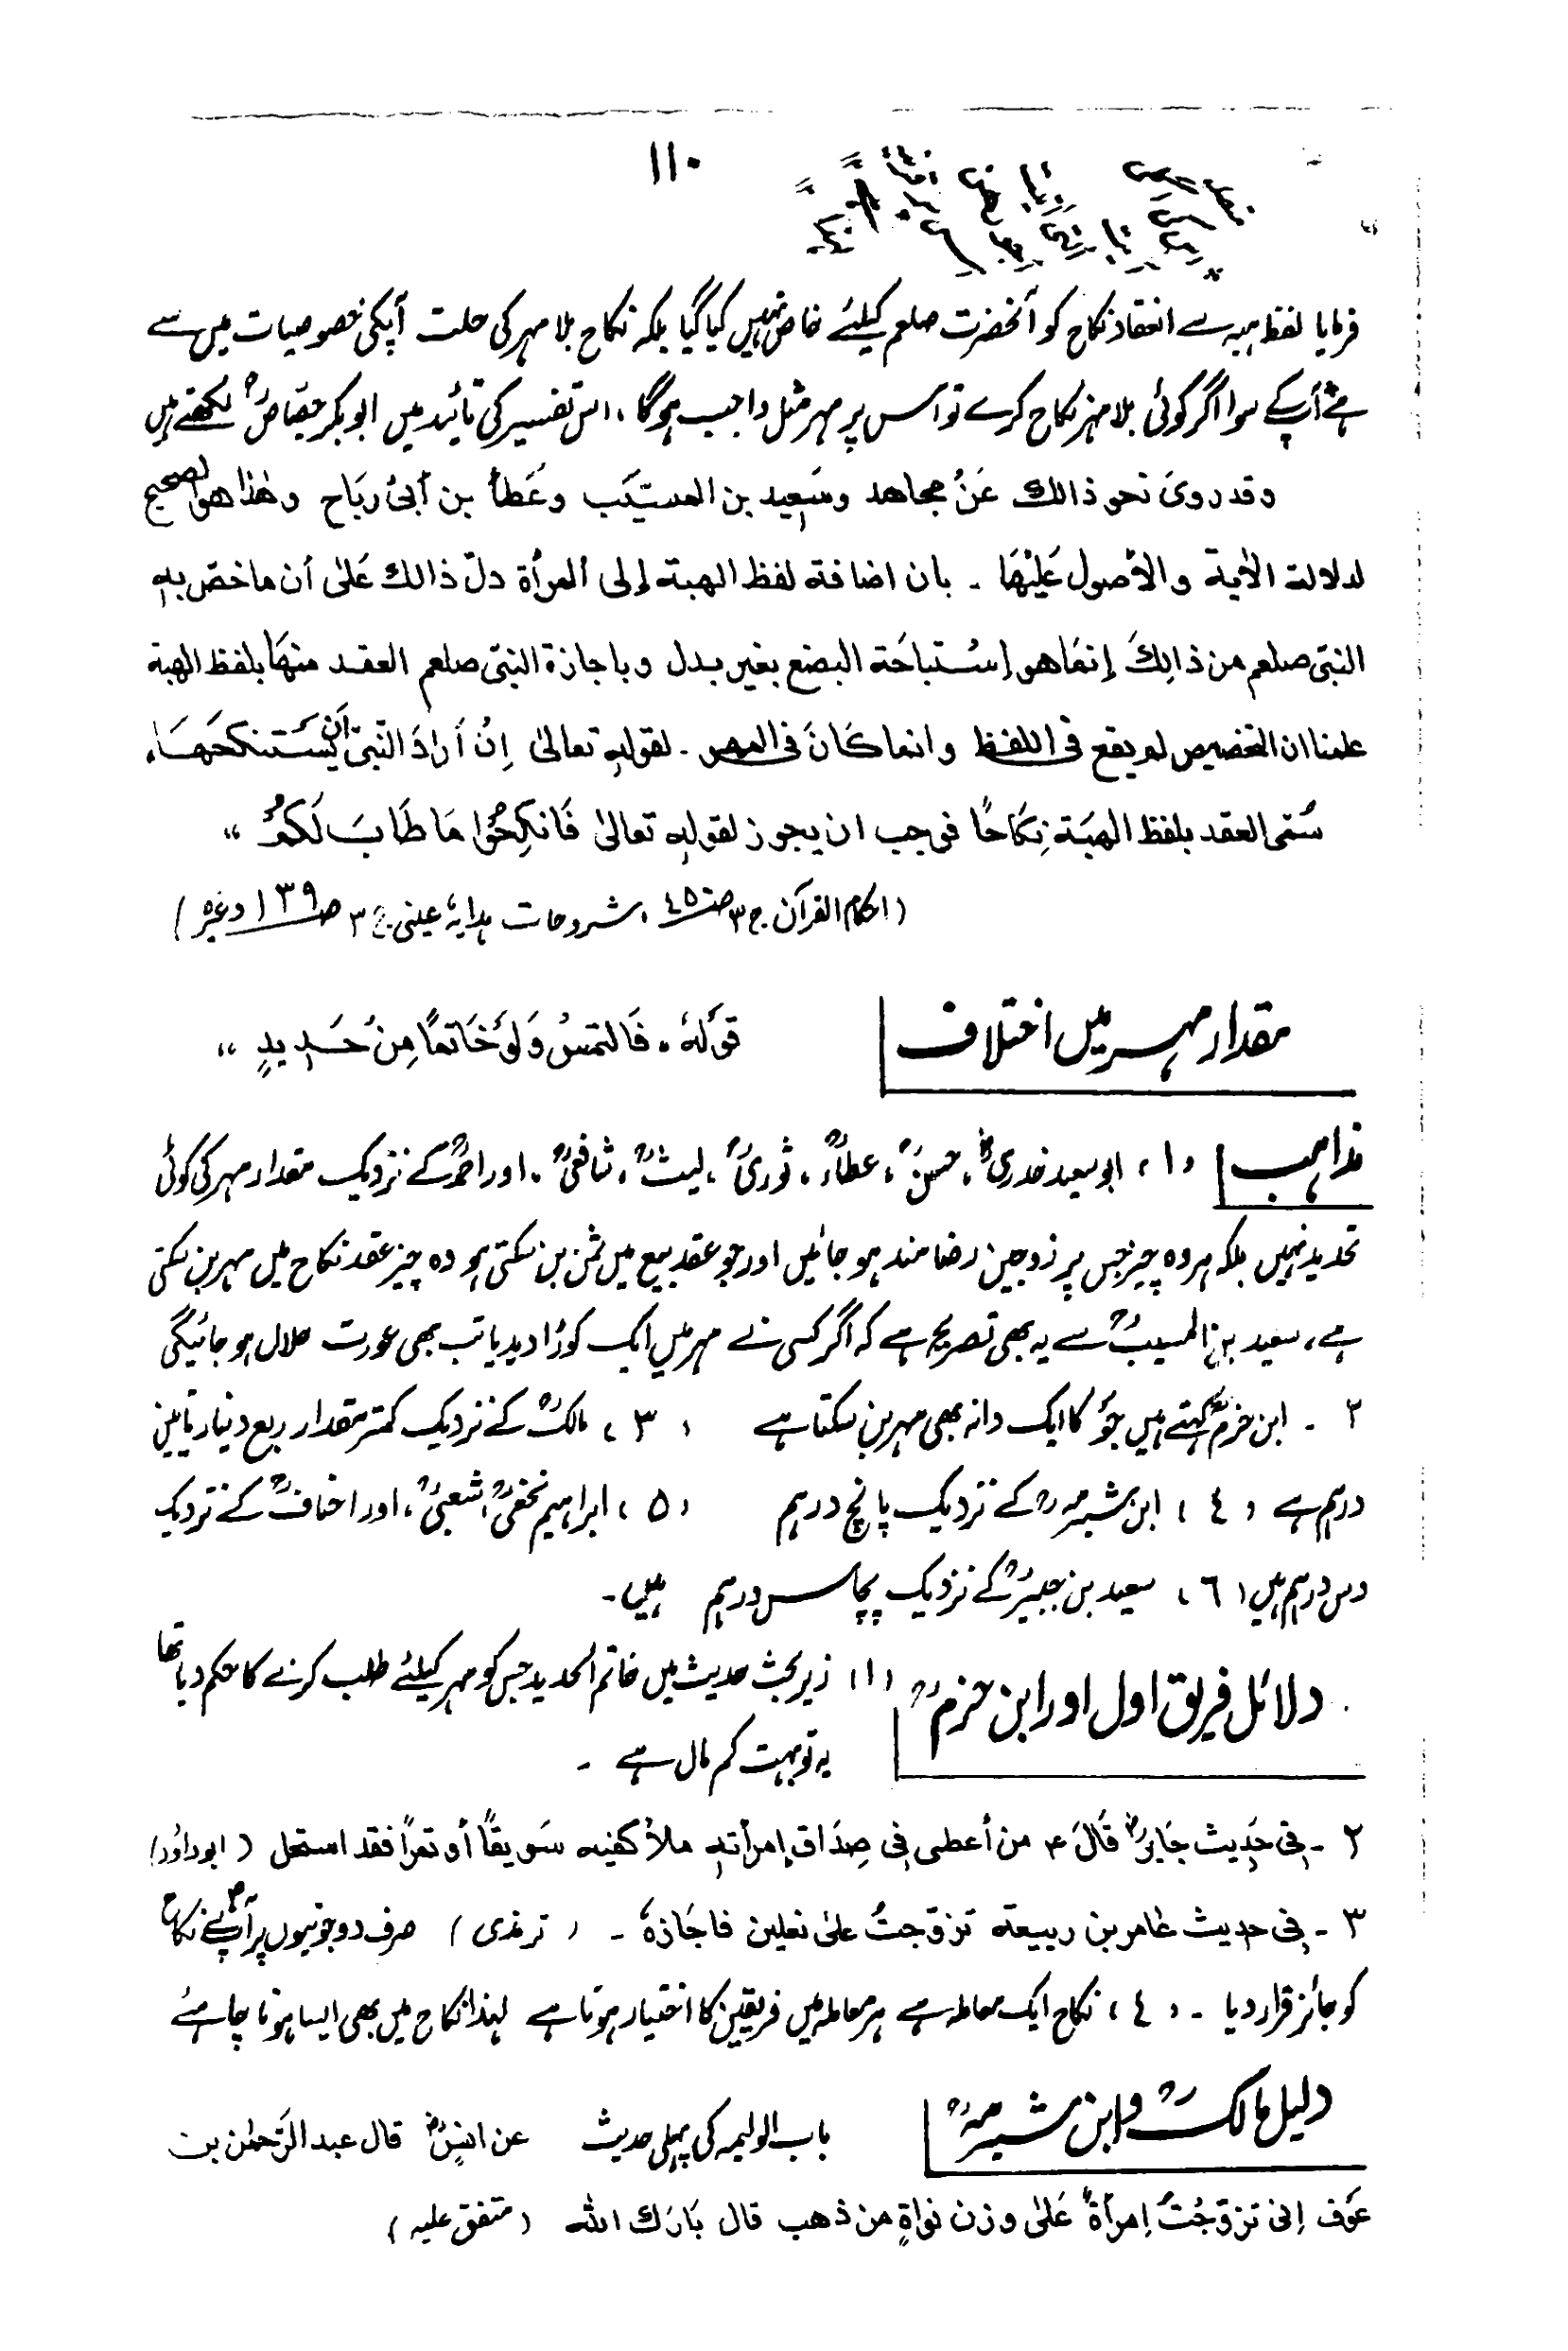 ۱۱۰
فرمایا لفظ ہبہ سے انعقاد نکاح کو آنحضرت صلعم کیلئے خاص نہیں کیا گیا بلکہ نکاح بلا مہر کی حلت آپکی خصوصیات میں سے
ہے آپکے سوا اگر کوئی بلا مہر نکاح کرے تو اس پر مہر مثل واجب ہوگا ، اس تفسیر کی تائید میں ابو بکر جصّاصؒ لکھتے ہیں
وقد روىَ نحو ذالك عَنْ مجاهد وسَعِيد بن المستيَّب وعَطأ بن أبىْ ربَاح وهٰذا هو الصحيح
لدلالة الأية والأصول عَلَيْهَا ۔ بان اضافة لفظ الهبة إلى المرأة دلّ ذالك عَلىٰ أن ماخصّ بهٖ
النبى صلعم من ذالِكَ إنمَا هو إسْتباحَة البضع بغير بدل وباجازة النبى صلعم العقد منهَا بلفظ الهبة
علمنا ان التخصيص لم يقع فى اللفظ وانما كَانَ فى المهر ۔ لقولهٖ تعالىٰ اِنْ اَرَادَ النَّبِىّ اَنْ يَّسْتَنكحَهَا ،
سُمّى العقد بلفظ الهبَة نِكَاحًا فوجب ان يجوز لقولهٖ تعالىٰ فَانكِحُوْا مَا طَابَ لَكُمْ “
( احکام القرآن ج ۳ صـ ٤٥ ، شروحات ہدایہ عینی ج ۳ صـ ۱۳۹ وغیرہ )
مقدار مہر میں اختلاف قوَلهٗ ، فَالتمسْ وَلَوْ خَاتمًا مِنْ حَدِيدٍ “
مذاہب (۱) ابو سعید خدریؓ ، حسنؒ ، عطاءؒ ، ثوریؒ ، لیثؒ ، شافعیؒ ، اور احمدؒ کے نزدیک مقدار مہر کی کوئی
تحدید نہیں بلکہ ہر وہ چیز جس پر زوجین رضامند ہو جائیں اور جو عقد بیع میں ثمن بن سکتی ہو وہ چیز عقد نکاح میں مہر بن سکتی
ہے ، سعید بن المسیبؒ سے یہ بھی تصریح ہے کہ اگر کسی نے مہر میں ایک کوڑا دیدیا تب بھی عورت حلال ہو جائیگی
۲ ۔ ابن حزمؒ کہتے ہیں جَو کا ایک دانہ بھی مہر بن سکتا ہے (۳) مالکؒ کے نزدیک کمتر مقدار ربع دینار یا تین
درہم ہے (٤) ابن شبرمہؒ کے نزدیک پانچ درہم (٥) ابراہیم نخعیؒ ، شعبیؒ ، اور احنافؒ کے نزدیک
دس درہم ہیں (٦) سعید بن جبیرؒ کے نزدیک پچاس درہم ہیں ۔
دلائل فریق اول اور ابن حزمؒ (۱) زیر بحث حدیث میں خاتم الحدید جس کو مہر کیلئے طلب کرنے کا حکم دیا تھا
یہ تو بہت کم مال ہے ۔
۲ ۔ فِى حَدِيث جَابرؓ قَالَ ؑ من أعطى فِى صِدَاق إمرأتهٖ ملأ كفيه سَويقًا أو تمرًا فقد استحل ( ابوداؤد )
۳ ۔ فِى حديث عَامر بن ربيعة تزوّجتُ علىٰ نعلين فاجَازهٗ ۔ ( ترمذی ) صرف دو جوتیوں پر آپؐ نے نکاح
کو جائز قرار دیا ۔ (٤) نکاح ایک معاملہ ہے ہر معاملہ میں فریقین کا اختیار ہوتا ہے لہذا نکاح میں بھی ایسا ہونا چاہئے
دلیل مالکؒ و ابن شبرمہؒ باب الولیمہ کی پہلی حدیث عن انسٍؓ قال عبد الرَّحمٰن بن
عَوف اِنى تزوَّجْتُ اِمرأةً عَلىٰ وزن نواةٍ من ذهب قال بَارَك الله ( متفق علیہ )